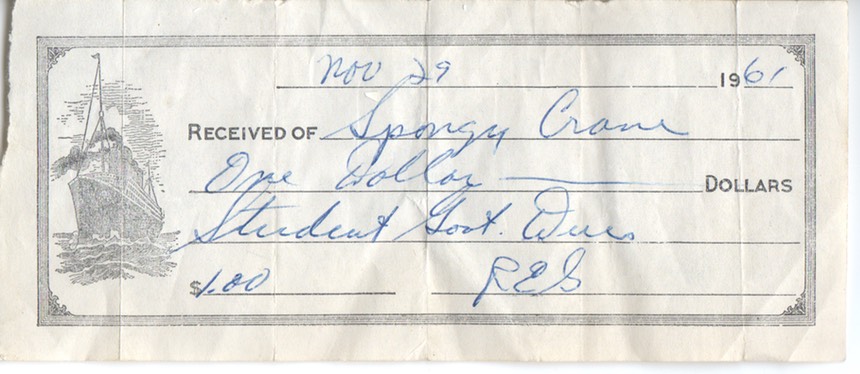 Nov 29 1961
RECEIVED OF Spongy Crane
One Dollar DOLLARS
Student Govt. Dues
$1.00 RES